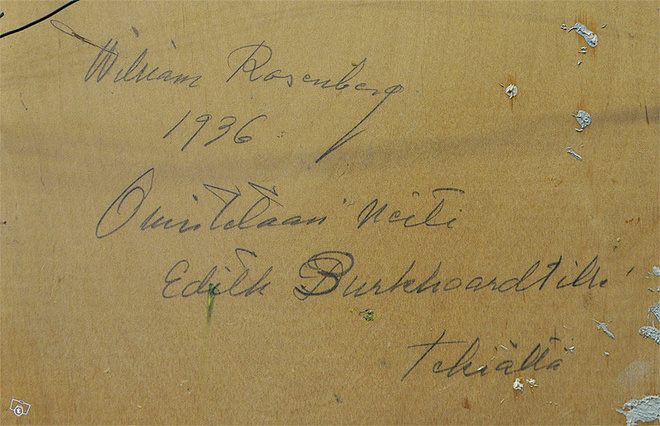 William Rosenberg
1936
Omistetaan Neiti
Edith Burkhoardtille
Tekiältä